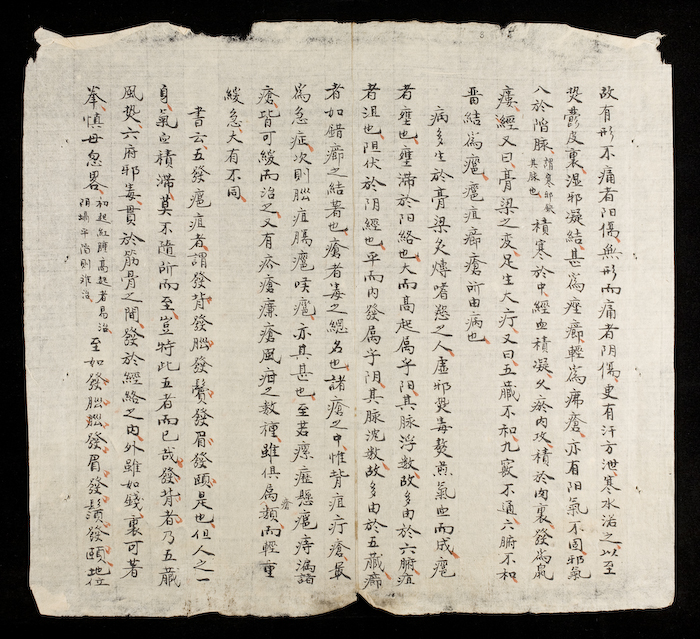 故有形不痛者阳傷無形而痛者阴傷更有汗方泄寒水治之以至
熨鬱皮裏湿邪凝結甚為痤癤輕為疿瘡亦有阳氣不固邪氣
八於陷脉謂寒邪氣其脉也積寒於中經血積凝久瘀肉攻積於肉裏發為鼠
瘻經又曰膏梁之变足生大疔又曰五藏不和九竅不通六腑不和
畱結為癰癰疽癤瘡所由病也
病多生於膏梁炙煿嗜慾之人虛邪熨毒熬煎氣血而成癰
者壅也壅滞於阳絡也大而高起属乎阳其脉浮数故多由於六腑疽
者沮也阻伏於阴經也平而内發属乎阴其脉沈数故多由於五藏癤
者如錯癤之結著也瘡者毒之總名也諸瘡之中惟背疽疔瘡最
為急症次則腦疽腸癰喉癰亦其甚也至若瘰癧懸癰痔漏諸
瘡皆可緩而治之又有疥瘡臁瘡風疳之数種雖俱属瘡類而輕重
緩急大有不同
書云五發癰疽者謂發背發腦發鬢發眉發頤是也但人之一
身氣血積滞莫不隨所而至豈特此五者而已哉發背者乃五藏
風熨六府邪毒貫於筋骨之間發於經絡之内外雖如錢裏可著
拳慎毋忽畧初起紅腫高起者易治阴塌平陷則难治至如發腦腦發眉發鬚發頤地位